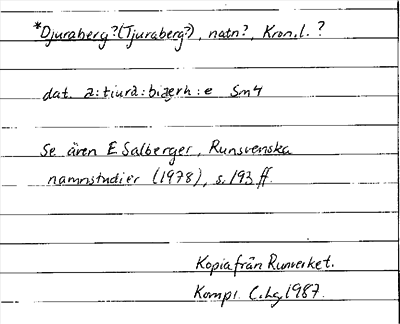 *Djuraberg?(Tjuraberg?), natn?, Kron.l. ?
dat. a:tiurà:biærh:e Sm4
Se även E Salberger, Runsvenska
namnstudier (1978), s. 193 ff.
Kopia från Runverket.
Kompl. C.Lg. 1987.